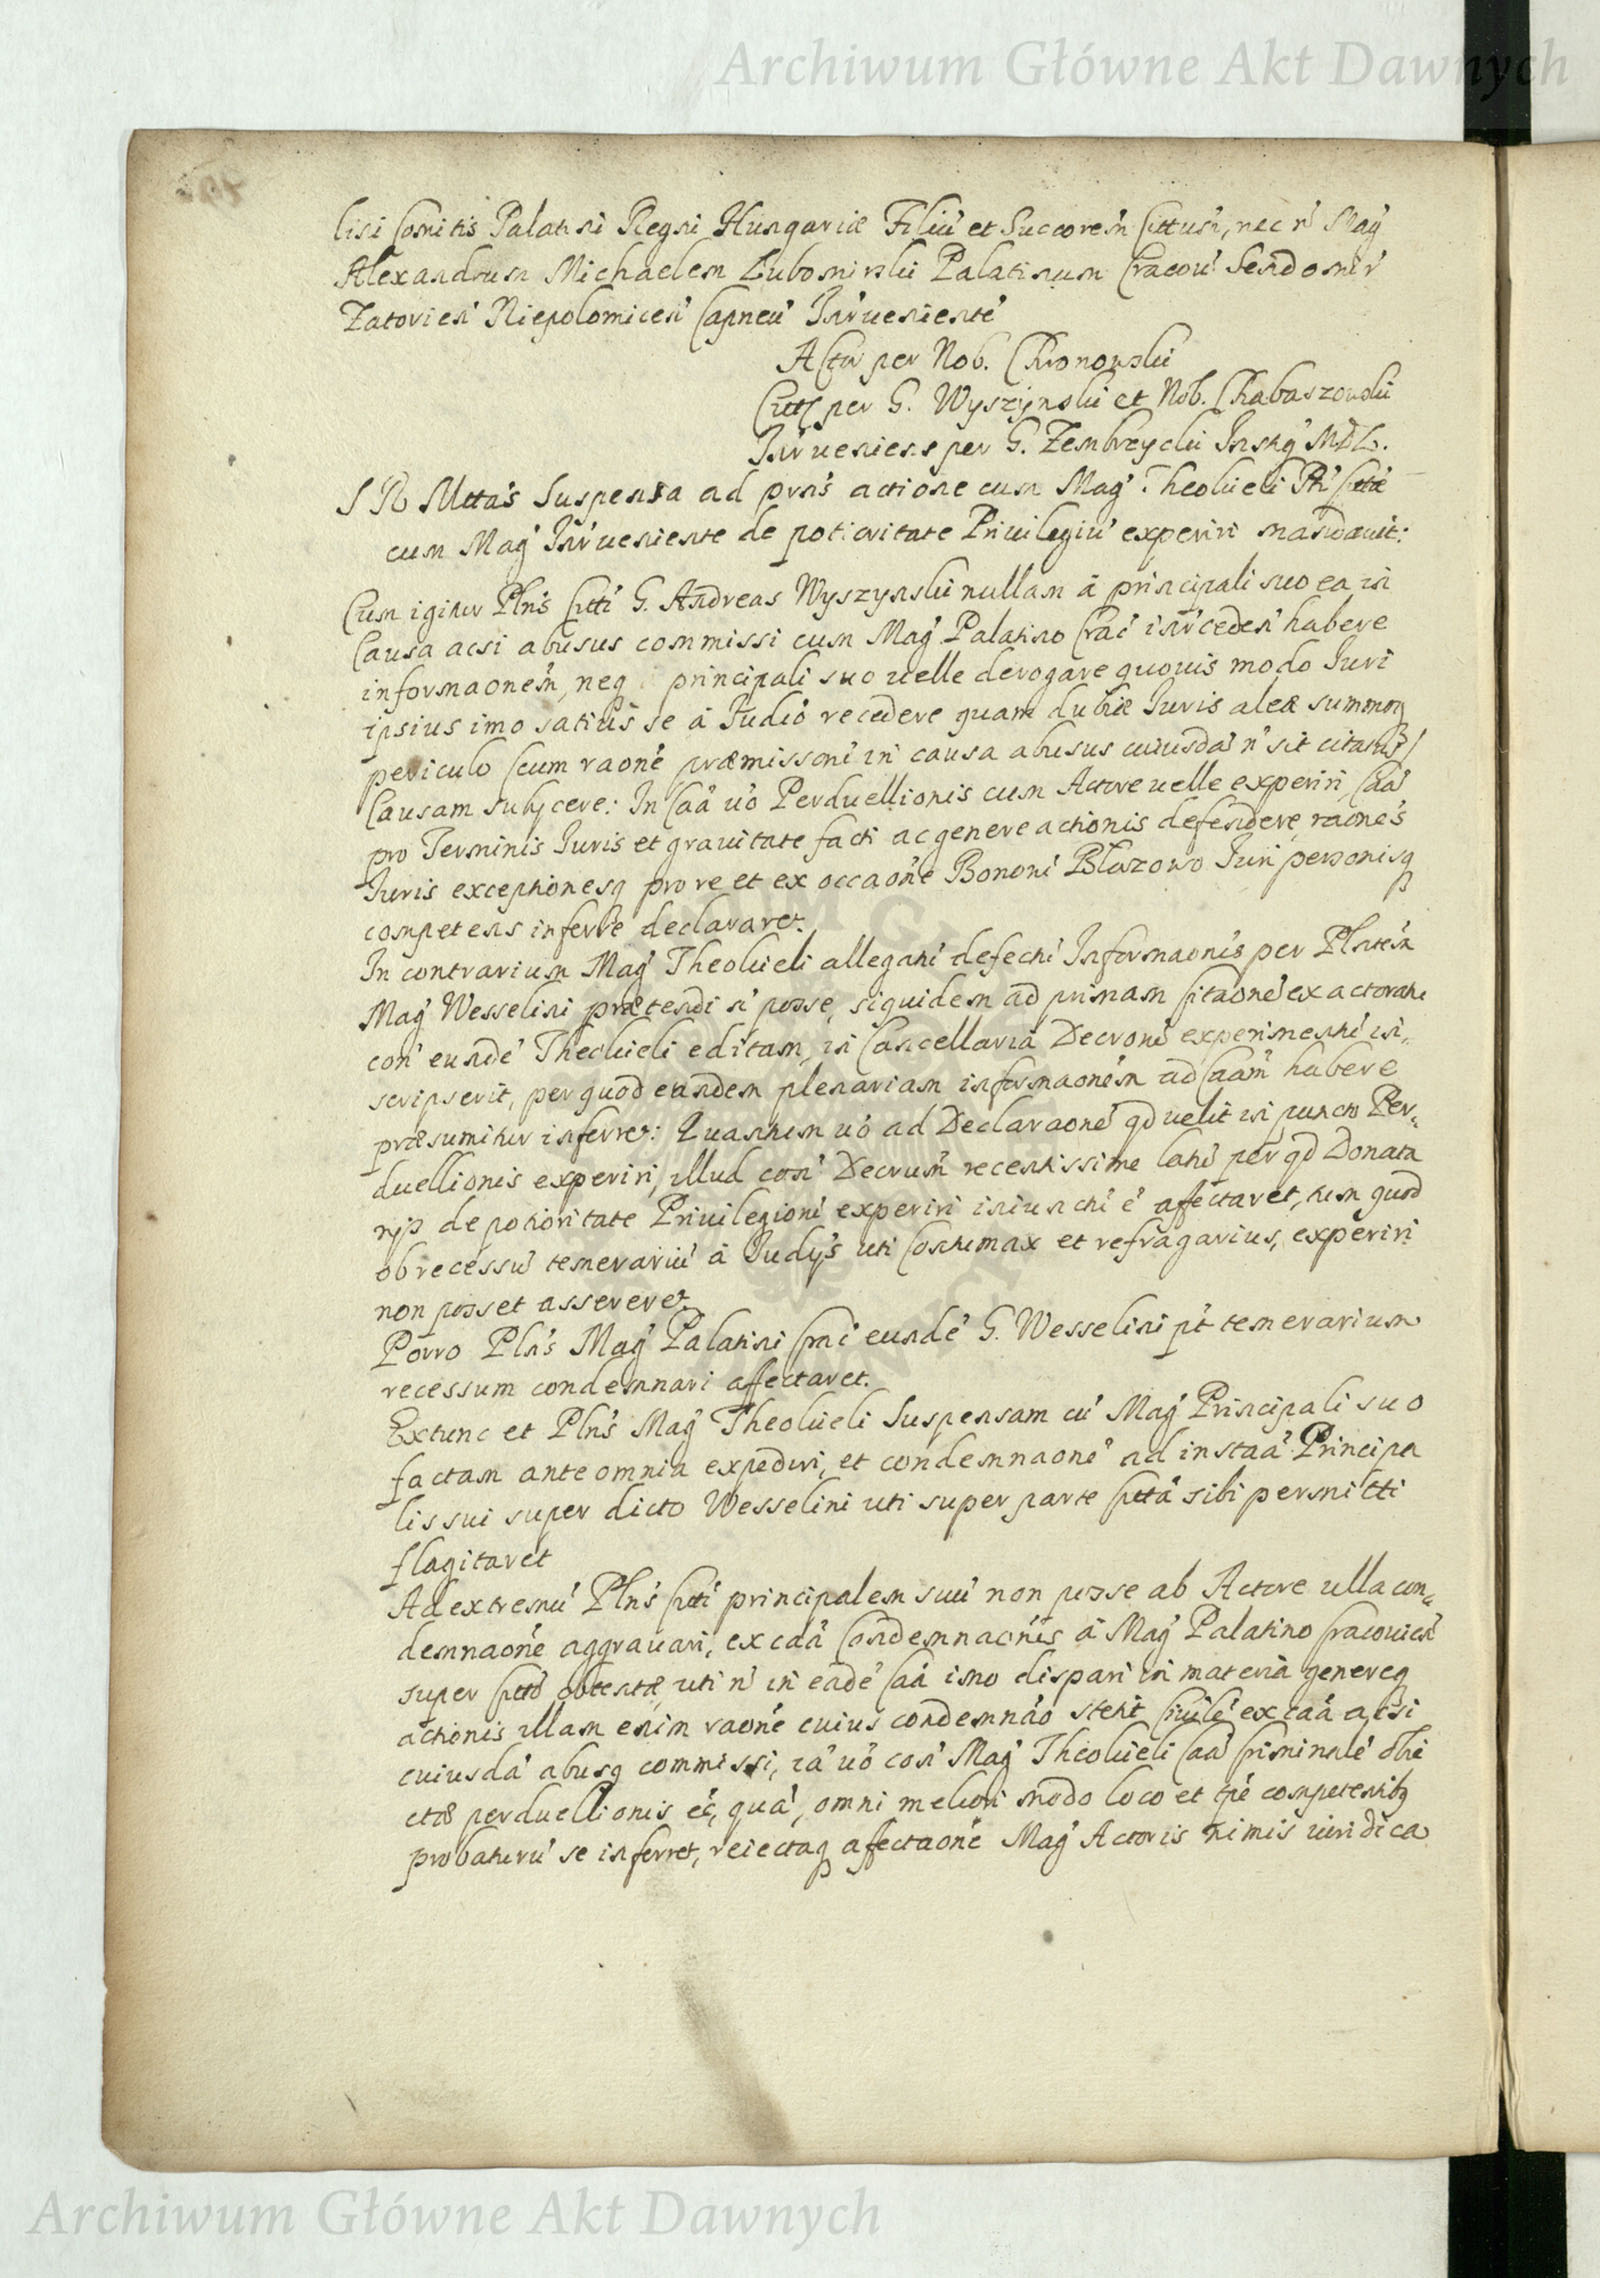 Archiwum Główne Akt Dawnych
lini Comitis Palatini Regni Hungariæ Filiu' et Succoren' Cittum, nec n' Mag'
Alexandrum Michaelem Lubomirski Palatinum Cracou' Sendomir'
Zatorien' Niepolomicen' Capneu' Inr'uenientē
Actor per Nob. Chronowski
Citt per G. Wyszynski et Nob. Chabaszowski
Inr'ueniens per G. Zembrzycki Instig' MDL.
S R Mttas Suspensa ad prns actione cum Mag' Theokieli Cittæ
cum Mag' Inr'ueniente de potioritate Priuilegiu' experiri mandauit:
Cum igitur Plns Citti G. Andreas Wyszynski nullam à principali suo ea in
Causa acsi abusus commissi cum Mag' Palatino Crac' inr'ceden' habere
informaonem, neq principali suo uelle derogare quouis modo Iuri
ipsius imo satius se à Iudio recedere quam dubiæ Iuris aleæ summoq
periculo (cum raone præmissoru' in causa abusus cuiusda' n' sit citatus)
Causam subijcere: In Caã uo Perduellionis cum Actore uelle experiri, Caã
pro Terminis Iuris et grauitate facti ac genere actionis defendere, raones
Iuris exceptionesq pro re et ex occaone Bonoru' Blazowo Iuri personisq
competens inferre declararet.
In contrarium Mag' Theokieli allegati defectu' Informaonis per Plntem
Mag' Wesselini prætendi n' posse, siquidem ad primam citaone' ex actoratu
con' eunde' Theokieli editam, in Cancellaria Decroru' experimentu' in-
scripserit, per quod eundem plenariam informaonem ad Caam habere
præsumitur inferret: Quantum uo ad Declaraone' qd uelit in puncto Per-
duellionis experiri, illud con' Decrum recentissime latu' per qd Donata
rijs de potioritate Priuilegioru' experiri iniunctu' e' affectaret, tum quod
ob recessu' temerariu' à Iudijs uti Contumax et refragarius, experiri
non posset assereret.
Porro Plns Mag' Palatini Crac' eunde' G. Wesselini pt temerarium
recessum condemnari affectaret.
Extunc et Plns Mag' Theokieli Suspensam cu' Mag' Principali suo
factam ante omnia expediri, et condemnaone' ad instaã Principa
lis sui super dicto Wesselini uti super parte Cittã sibi permitti
flagitaret
Ad extremu' Plns Citti principalem suu' non posse ab Actore ulla con-
demnaone aggrauari, ex caã Condemnaonis à Mag' Palatino Cracouien'
super Citto obtentæ, uti n' in eade' Caã imo dispari in materia genereq
actionis illam enim raone cuius condemnao stetit Ciuile' ex caã acsi
cuiusda' abusq commissi, ea' uo con' Mag' Theokieli Caã Criminale' obie
ctæ perduellionis ec, qua', omni meliori modo loco et tpe competentibq
probaturu' se inferret, reiectaq affectaone Mag' Actoris nimis iuridica
Archiwum Główne Akt Dawnych